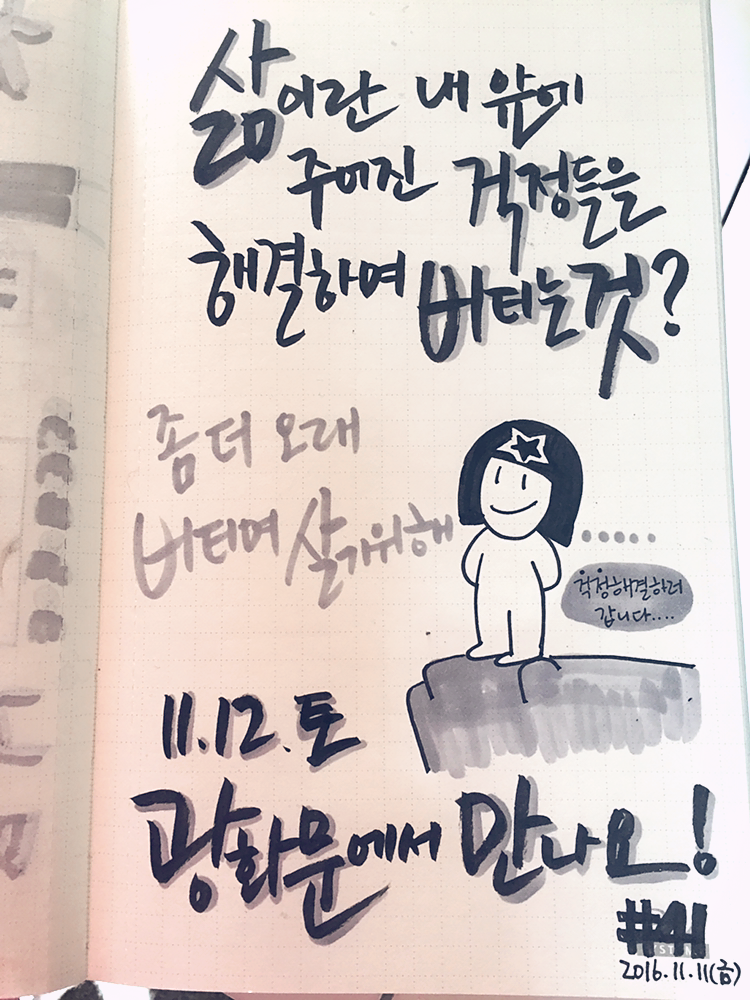 삶이란 내 앞에
주어진 걱정들을
해결하며 버티는것?
좀 더 오래
버티며 살기위해
.....
걱정해결하러
갑니다....
11.12.토
광화문에서 만나요!
#41
2016.11.11(금)